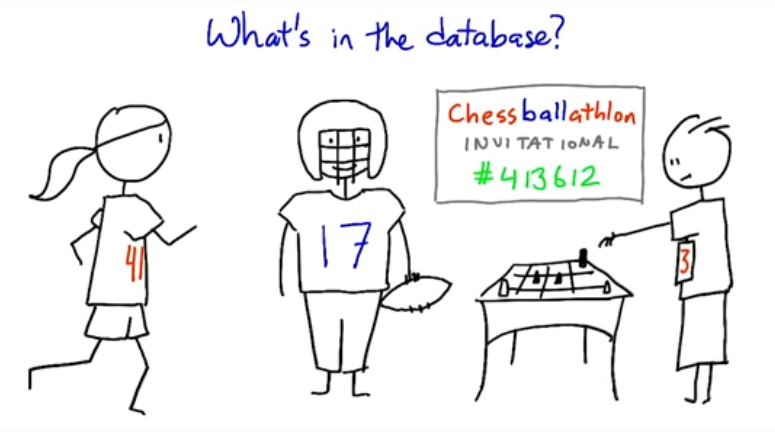 What's in the database?
Chessballathlon
INVITATIONAL
#413612
41
17
3